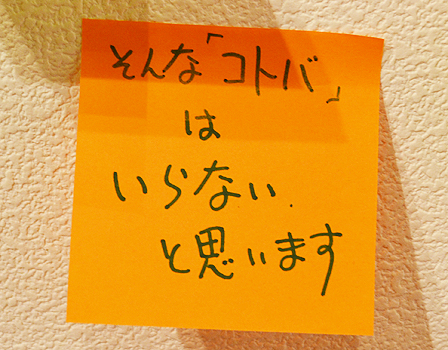 そんな「コトバ」
は
いらない
と思います